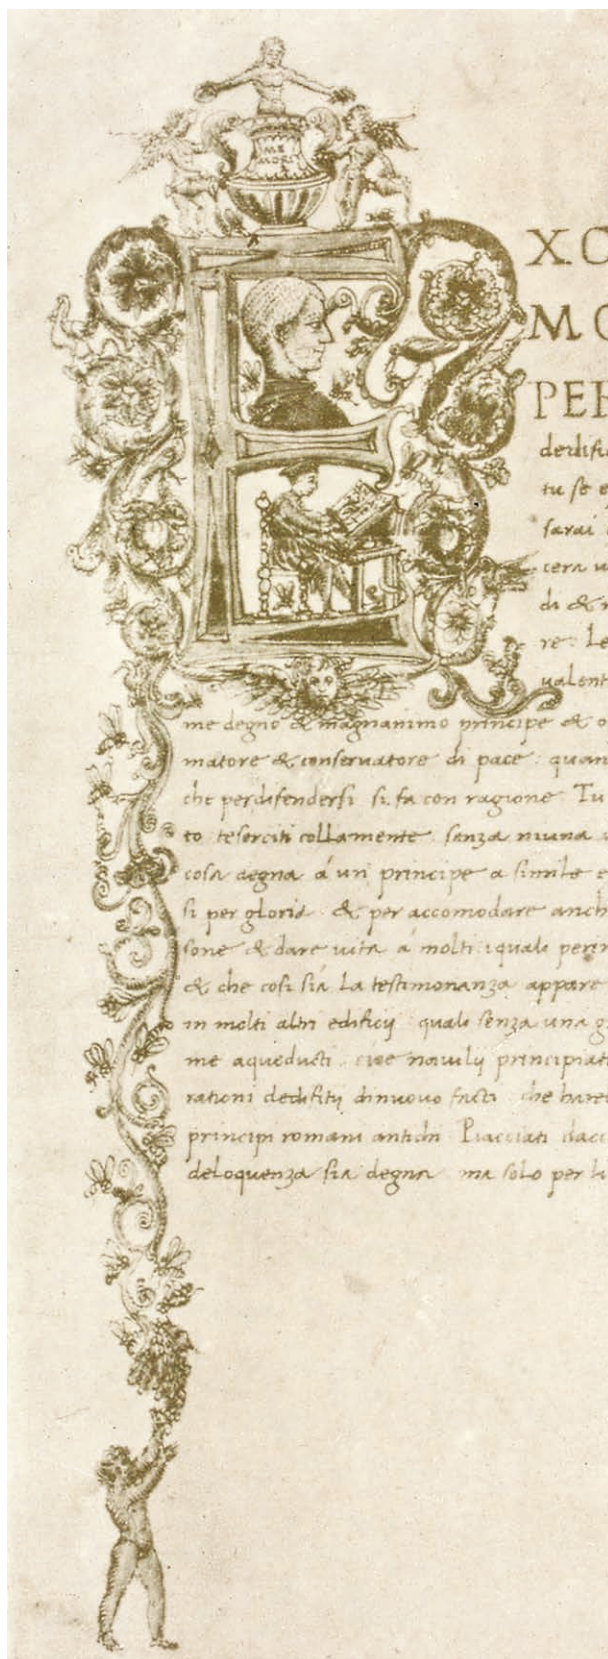 ME
MORI
E
X.C
MO
PER
dedific
tu se e
sarai
cera u
di & n
re: Le
ualent
me degno & magnanimo principe & o
matore & conseruatore di pace: quan
che perdifendersi si fa con ragione Tu
to teserciti collamente senza niuna
cosa degna á un principe a simile e
si per gloria & per accomodare anch
sone & dare uita á molti iquali perin
& che cosi sia La testimonanza appare
in molti altri edificij quali senza una g
me aqueducti cioe nauilij principiati
rationi dedifitij dinuouo facti che hare
principi romani antichi Piacciati dacc
deloquenza sia degna ma solo per li